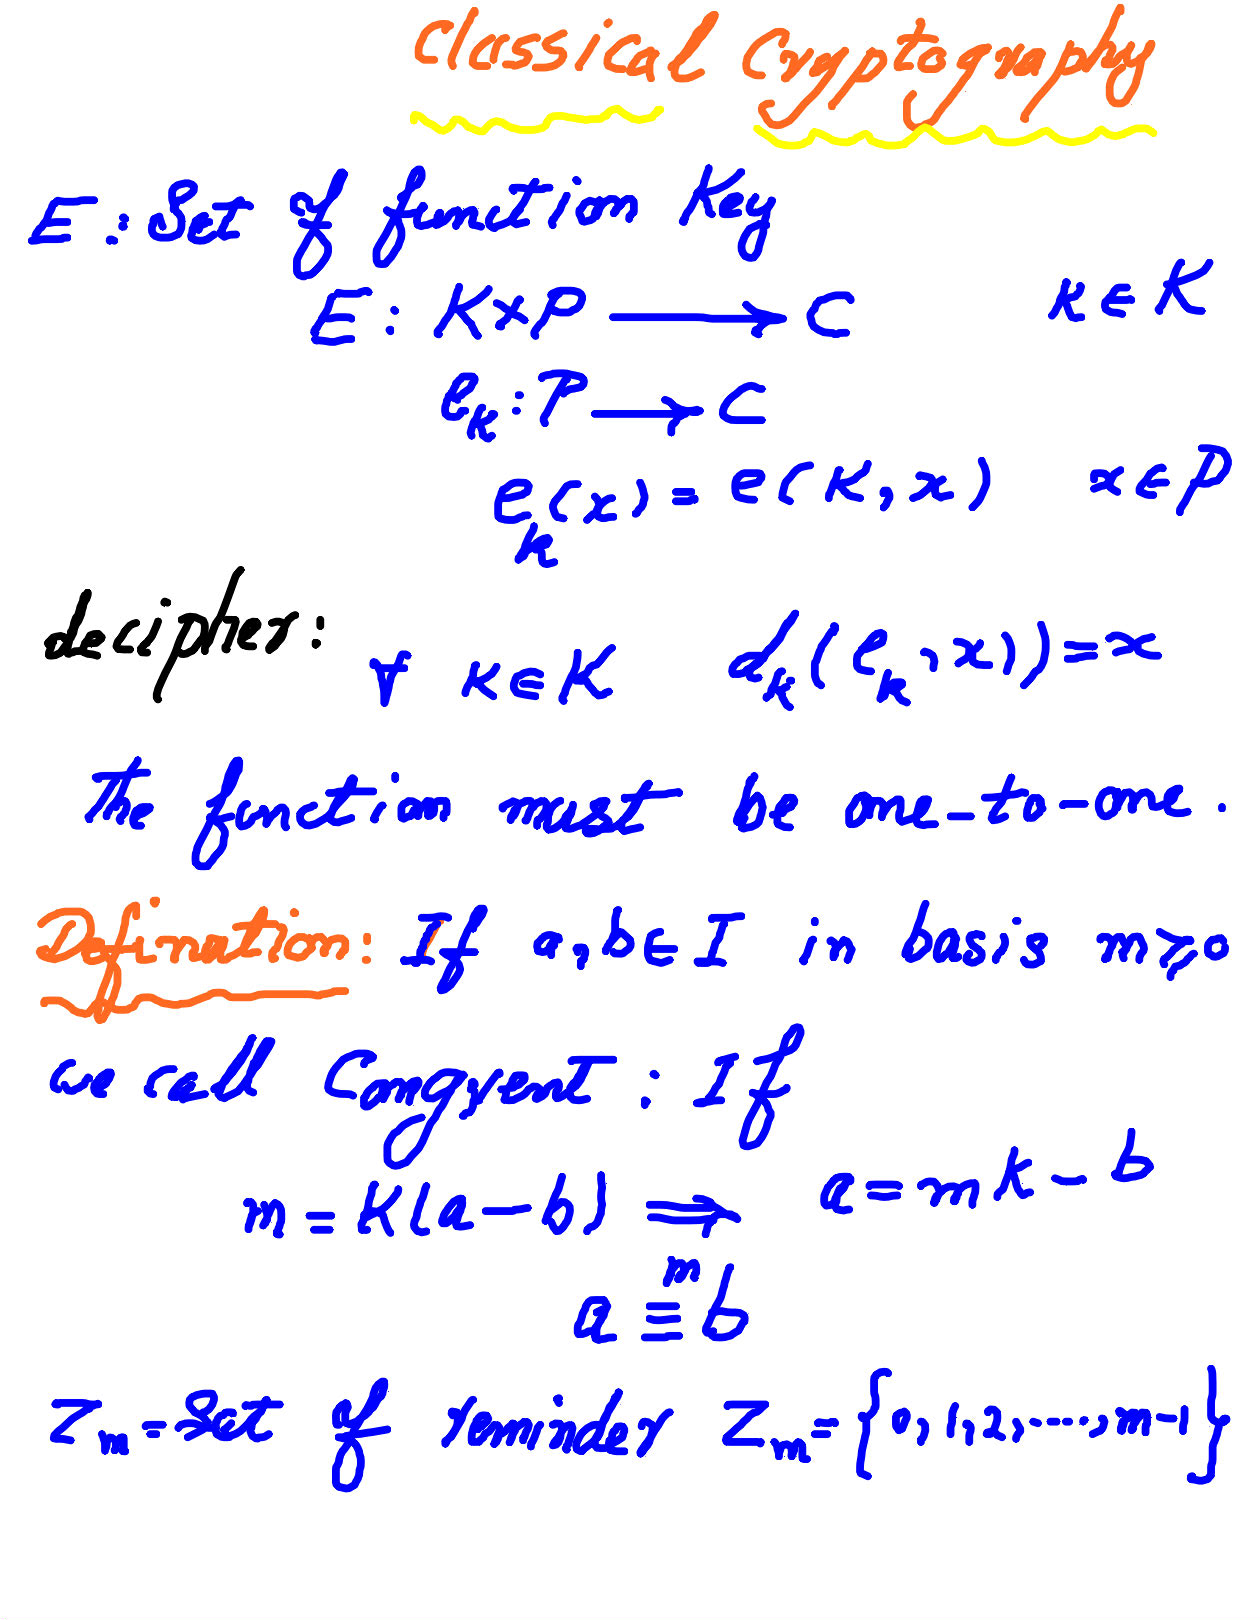 Classical Cryptography
E : Set of function Key
E : K×P ⟶ C    κ ∈ K
e_k : P ⟶ C
e_k(x) = e(K, x)    x ∈ P
decipher :
∀ κ ∈ K    d_k(e_k, x)) = x
The function must be one-to-one .
Defination : If a, b ∈ I in basis m ⩾ 0
we call Congruent : If
m = K(a - b) ⟹ a = mk - b
a ≡^m b
Z_m = Set of reminder Z_m = {0, 1, 2, ....., m-1}